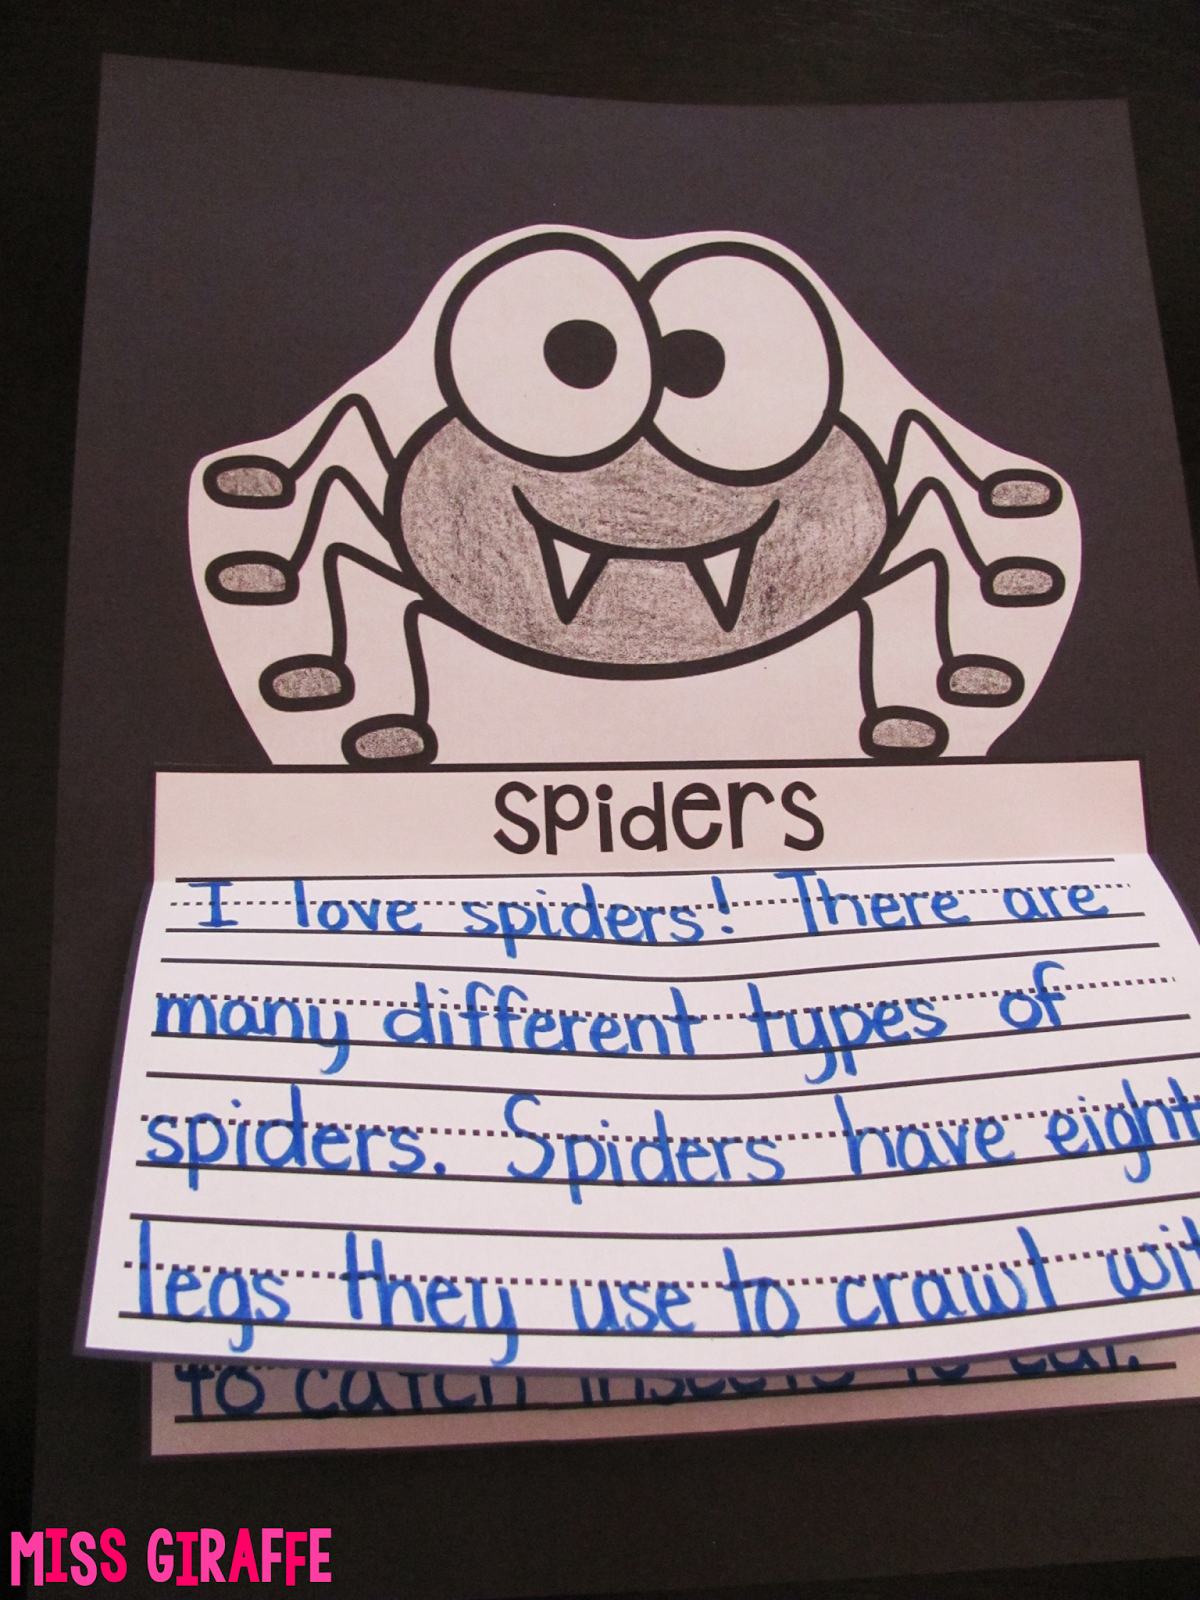 Spiders
I love spiders! There are
many different types of
spiders. Spiders have eight
legs they use to crawl
to catch insects to eat.
MISS GIRAFFE